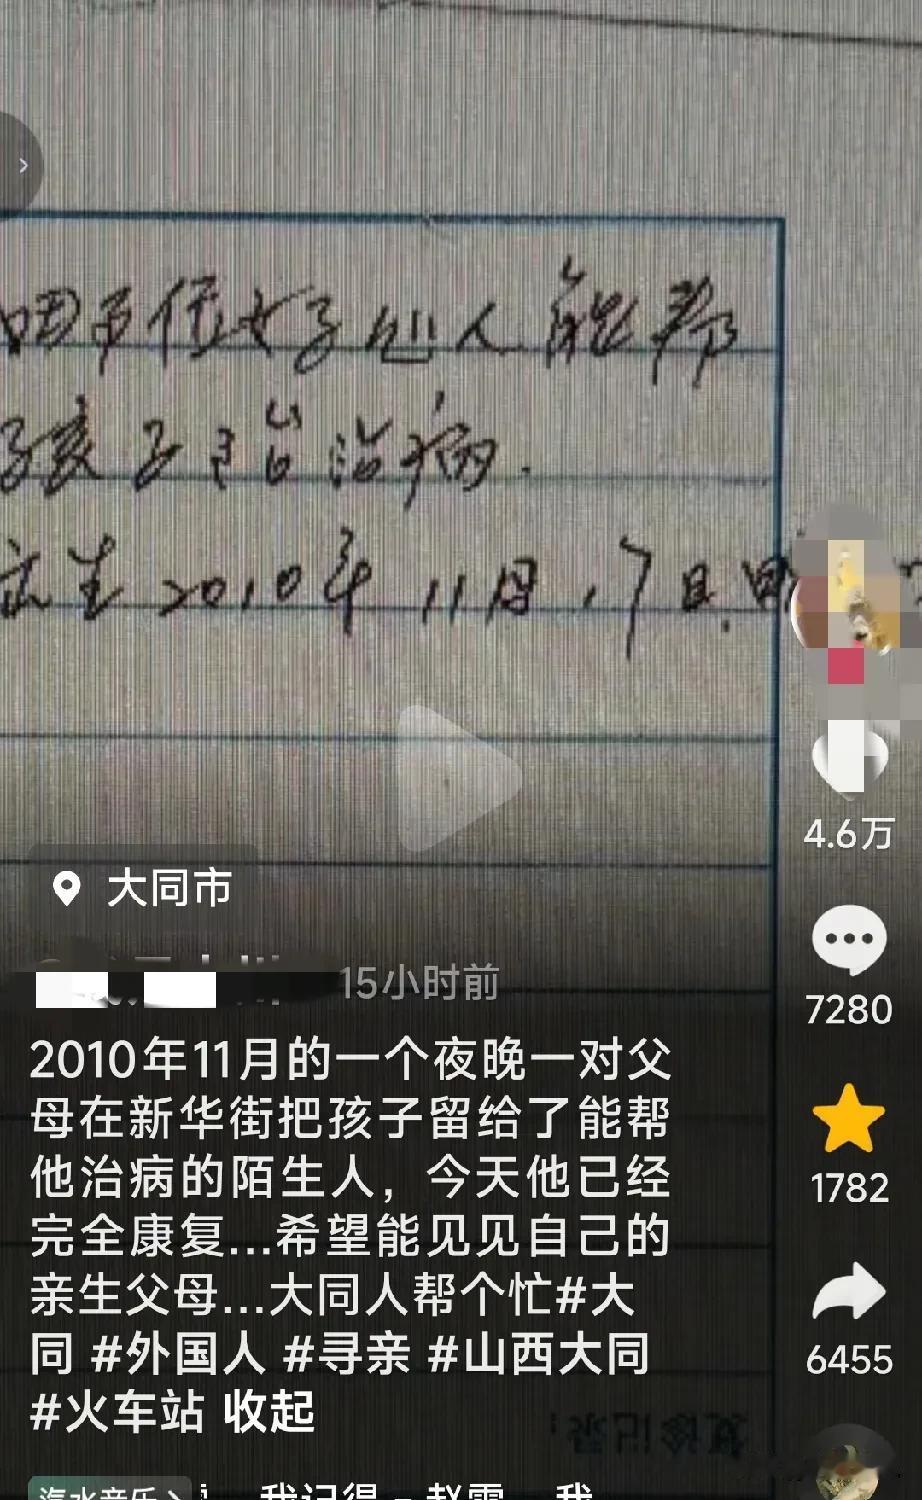 因为信好心人能帮
孩子看治病.
生 2010年11月17日
大同市
15小时前
4.6万
7280
1782
6455
2010年11月的一个夜晚一对父
母在新华街把孩子留给了能帮
他治病的陌生人，今天他已经
完全康复...希望能见见自己的
亲生父母...大同人帮个忙#大
同 #外国人 #寻亲 #山西大同
#火车站 收起
复诊记录：
汽水音乐
我记得 - 赵雷 我